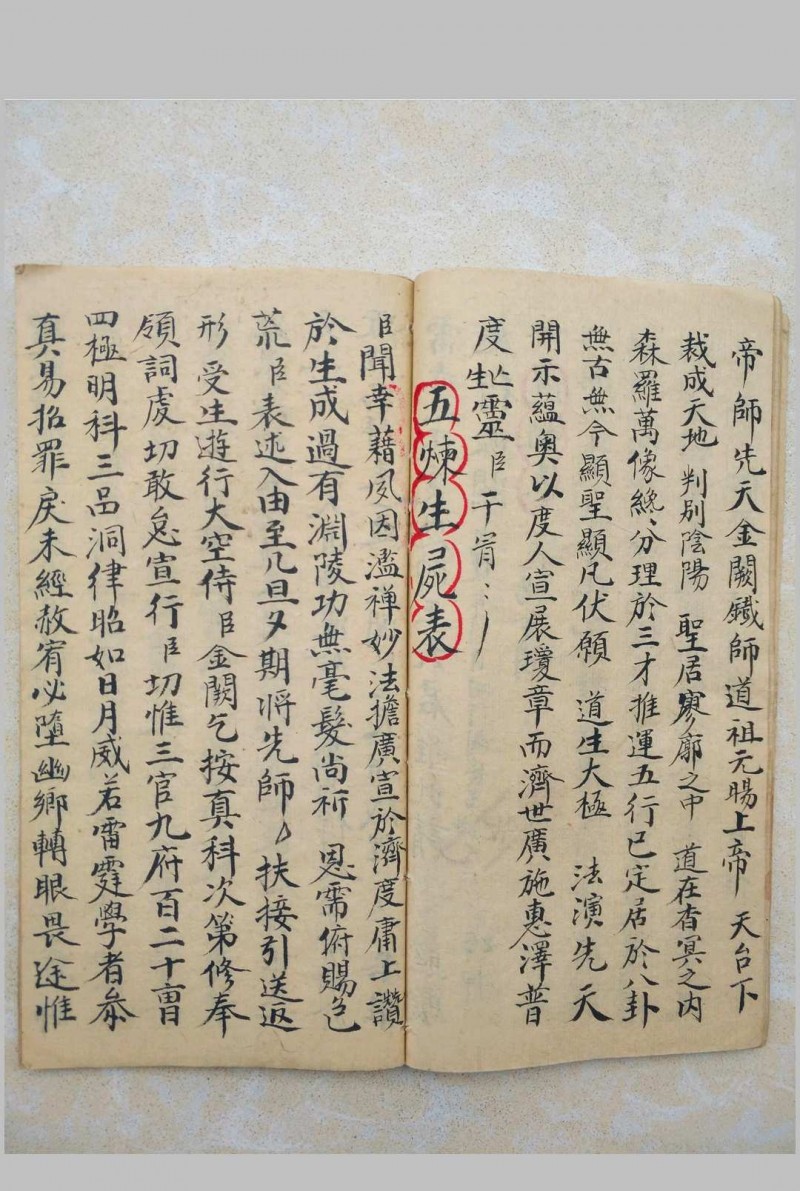 帝師先天金闕鐵師道祖元賜上帝 天台下
裁成天地 判別陰陽 聖居寥廓之中 道在杳冥之内
森羅萬像總、分理於三才推運五行已定居於八卦
無古無今顯聖顯凡伏願 道生大極 法演先天
開示蘊奥以度人宣展瓊章而濟世廣施惠澤普
度生亡靈臣干冐：
五煉生屍表
臣聞幸藉夙因濫禅妙法擔廣宣於濟度庸上讚
於生成過有淵陵功無毫髮尚祈 恩霈俯賜包
荒臣表述入由至几旦夕期將先師 扶接引送返
形受生遊行大空侍臣金闕乞按真科次第修奉
領詞虔切敢怠宣行臣切惟三官九府百二十曹
四極明科三品洞律昭如日月威若雷霆學者叅
真易招罪戾未經赦宥必墮幽鄉轉眼畏途惟